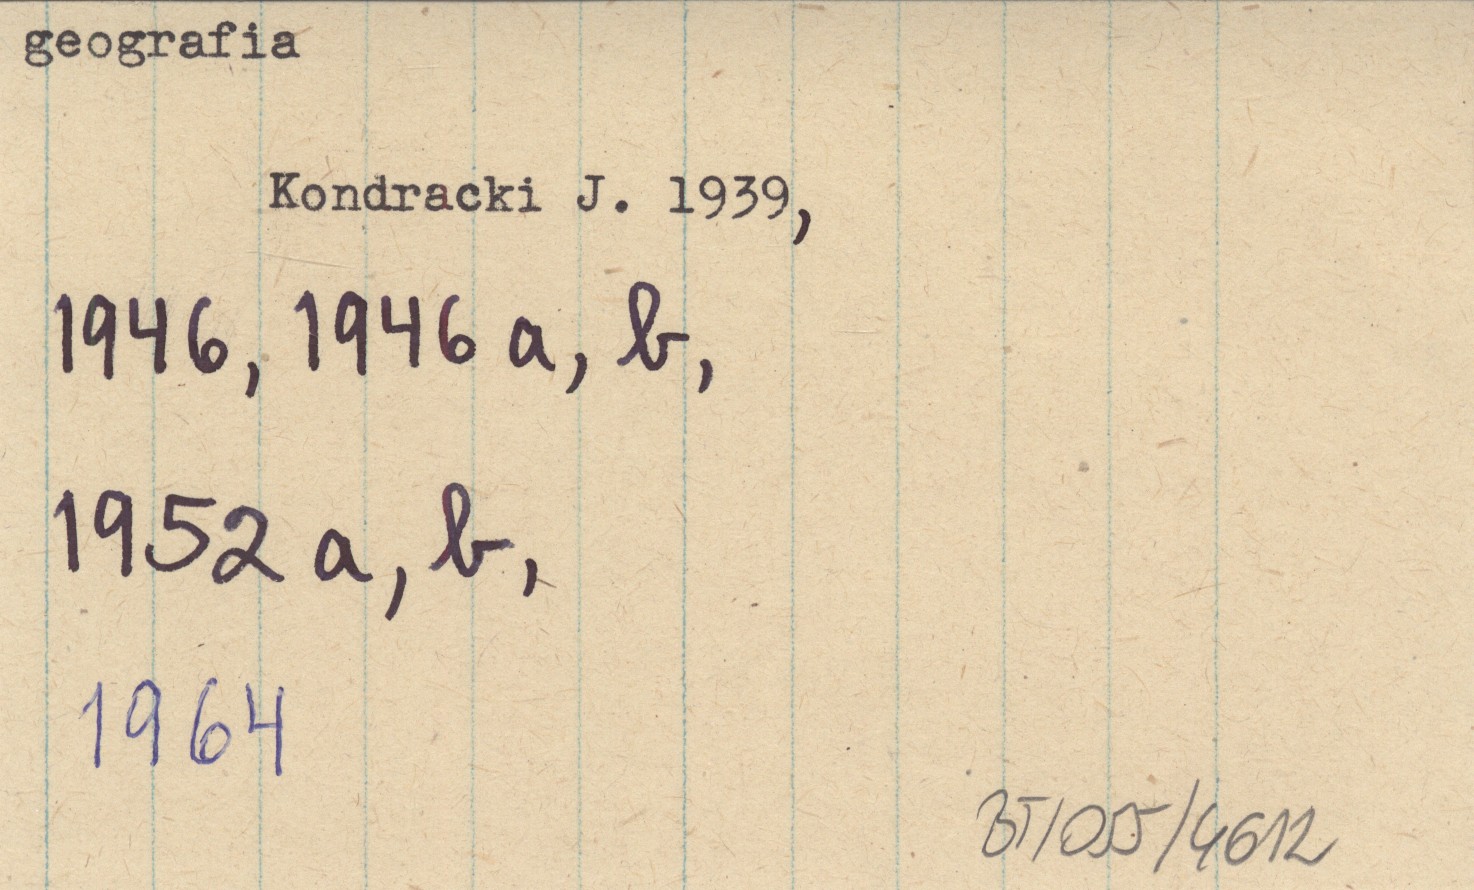 geografia
Kondracki J. 1939,
1946, 1946 a, b,
1952 a, b,
1964
BT/055/4612